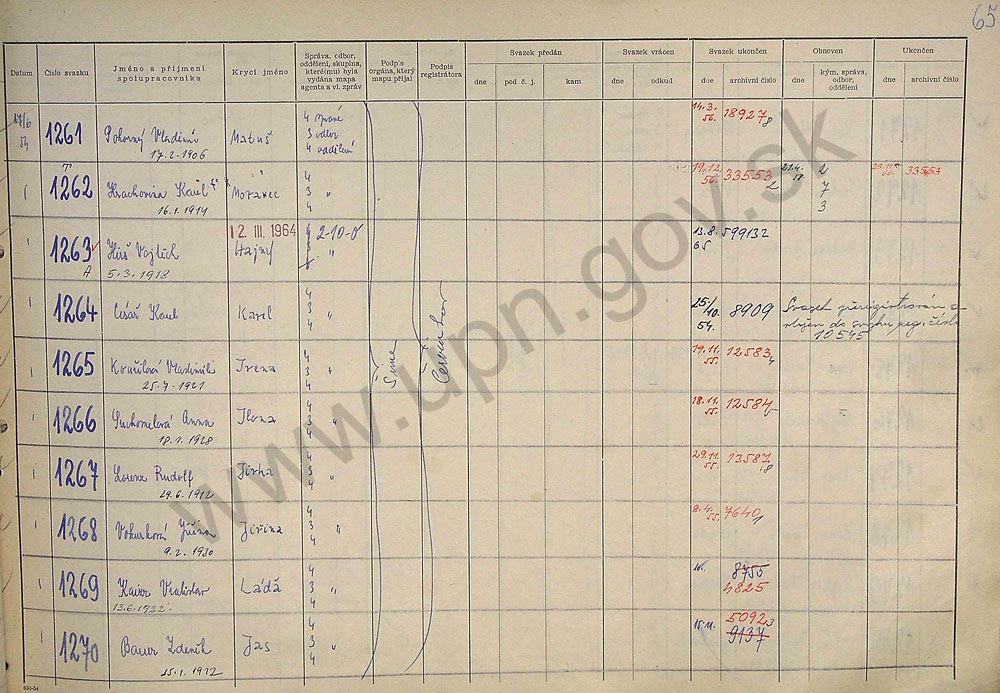 65
Datum
Číslo svazku
Jméno a příjmení
spolupracovníka
Krycí jméno
Správa, odbor,
oddělení, skupina,
které(mu) byla
vydána mapa
agenta a vl. zpráv
Podpis
orgána, který
mapu přijal
Podpis
registrátora
Svazek předán
dne
pod č. j.
kam
Svazek vrácen
dne
odkud
Svazek ukončen
dne
archivní číslo
Obnoven
dne
kým, správa,
odbor,
oddělení
Ukončen
dne
archivní číslo
17/6
54
1261
Pokorný Vladimír
17.2.1906
Matuš
4 správa
3 odbor
4 oddělení
14.3.
56.
18927
8
T
1262
Karel
16.1.1914
Moravec
4
3 "
4
19.12.
56.
33553
2
21.4.
2
7
3
33553
1263
A
Vojtěch
5.3.1918
12. III. 1964
Hajný
2-10-0
3 "
13.8.
65
599132
1264
Císař Karel
Karel
4
3 "
4
25/
10.
54.
8909
Svazek přeregistrován a
vložen do svazku reg. číslo
10545
1265
25.7.1921
Irena
4
3 "
4
19.11.
55.
12583
4
1266
Suchomelová Anna
18.1.1928
Ilona
4
3 "
4
18.11.
55.
12584
5
1267
Lorenz Rudolf
29.6.1912
Jirka
4
3 "
4
29.11.
55.
13587
8
1268
Vokurková Jiřina
9.2.1930
Jiřina
4
3 "
4
8.4.
55.
7640
1
1269
Vratislav
13.6.1922
Láďa
4
3 "
4
8755
4825
1270
Bauer Zdeněk
15.1.1912
Jas
4
3 "
4
15.11.
5092
3
9137
www.upn.gov.sk